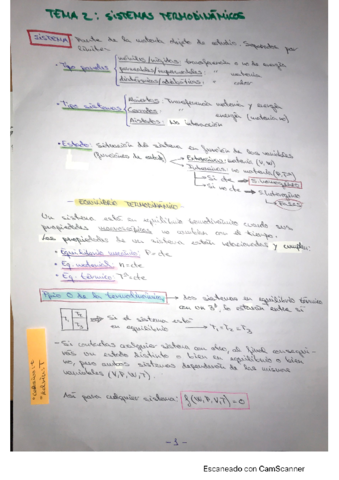 TEMA 2: SISTEMAS TERMODINÁMICOS
SISTEMA: Parte de la materia objeto de estudio. Separada por
límites:
• Tipo paredes
móviles/rígidas: transferencia o no de energía
permeables/impermeables: " materia
diatérmanas/adiabáticas: " calor
• Tipo sistemas
Abiertos: Transferencia materia y energía
Cerrados: " energía (materia no)
Aislados: No interacción
• Estado: situación del sistema en función de sus variables
(funciones de estado)
Extensivas: materia (V, W)
Intensivas: no materia
Si cte → S. homogéneo
Si no cte → S. heterogéneo
↳ Fases
- EQUILIBRIO TERMODINÁMICO
Un sistema está en equilibrio termodinámico cuando sus
propiedades macroscópicas no cambian con el tiempo.
Las propiedades de un sistema están relacionadas y cumplen:
• Equilibrio mecánico: P=cte
• Eq. material: n=cte
• Eq. térmico: Tª=cte
Ppio 0 de la termodinámica → dos sistemas en equilibrio térmico
con un 3º, lo estarán entre sí
T1 T2 T3
→ Si el sistema está
en equilibrio → T1 = T2 = T3
- Si contactas cualquier sistema con otro, al final consegui-
rás un estado distinto o bien en equilibrio o bien
no, pero ambos sistemas dependerán de las mismas
variables (V, P, W, T).
Así para cualquier sistema: f(W,P,V,T) = 0
- 1 -
Escaneado con CamScanner